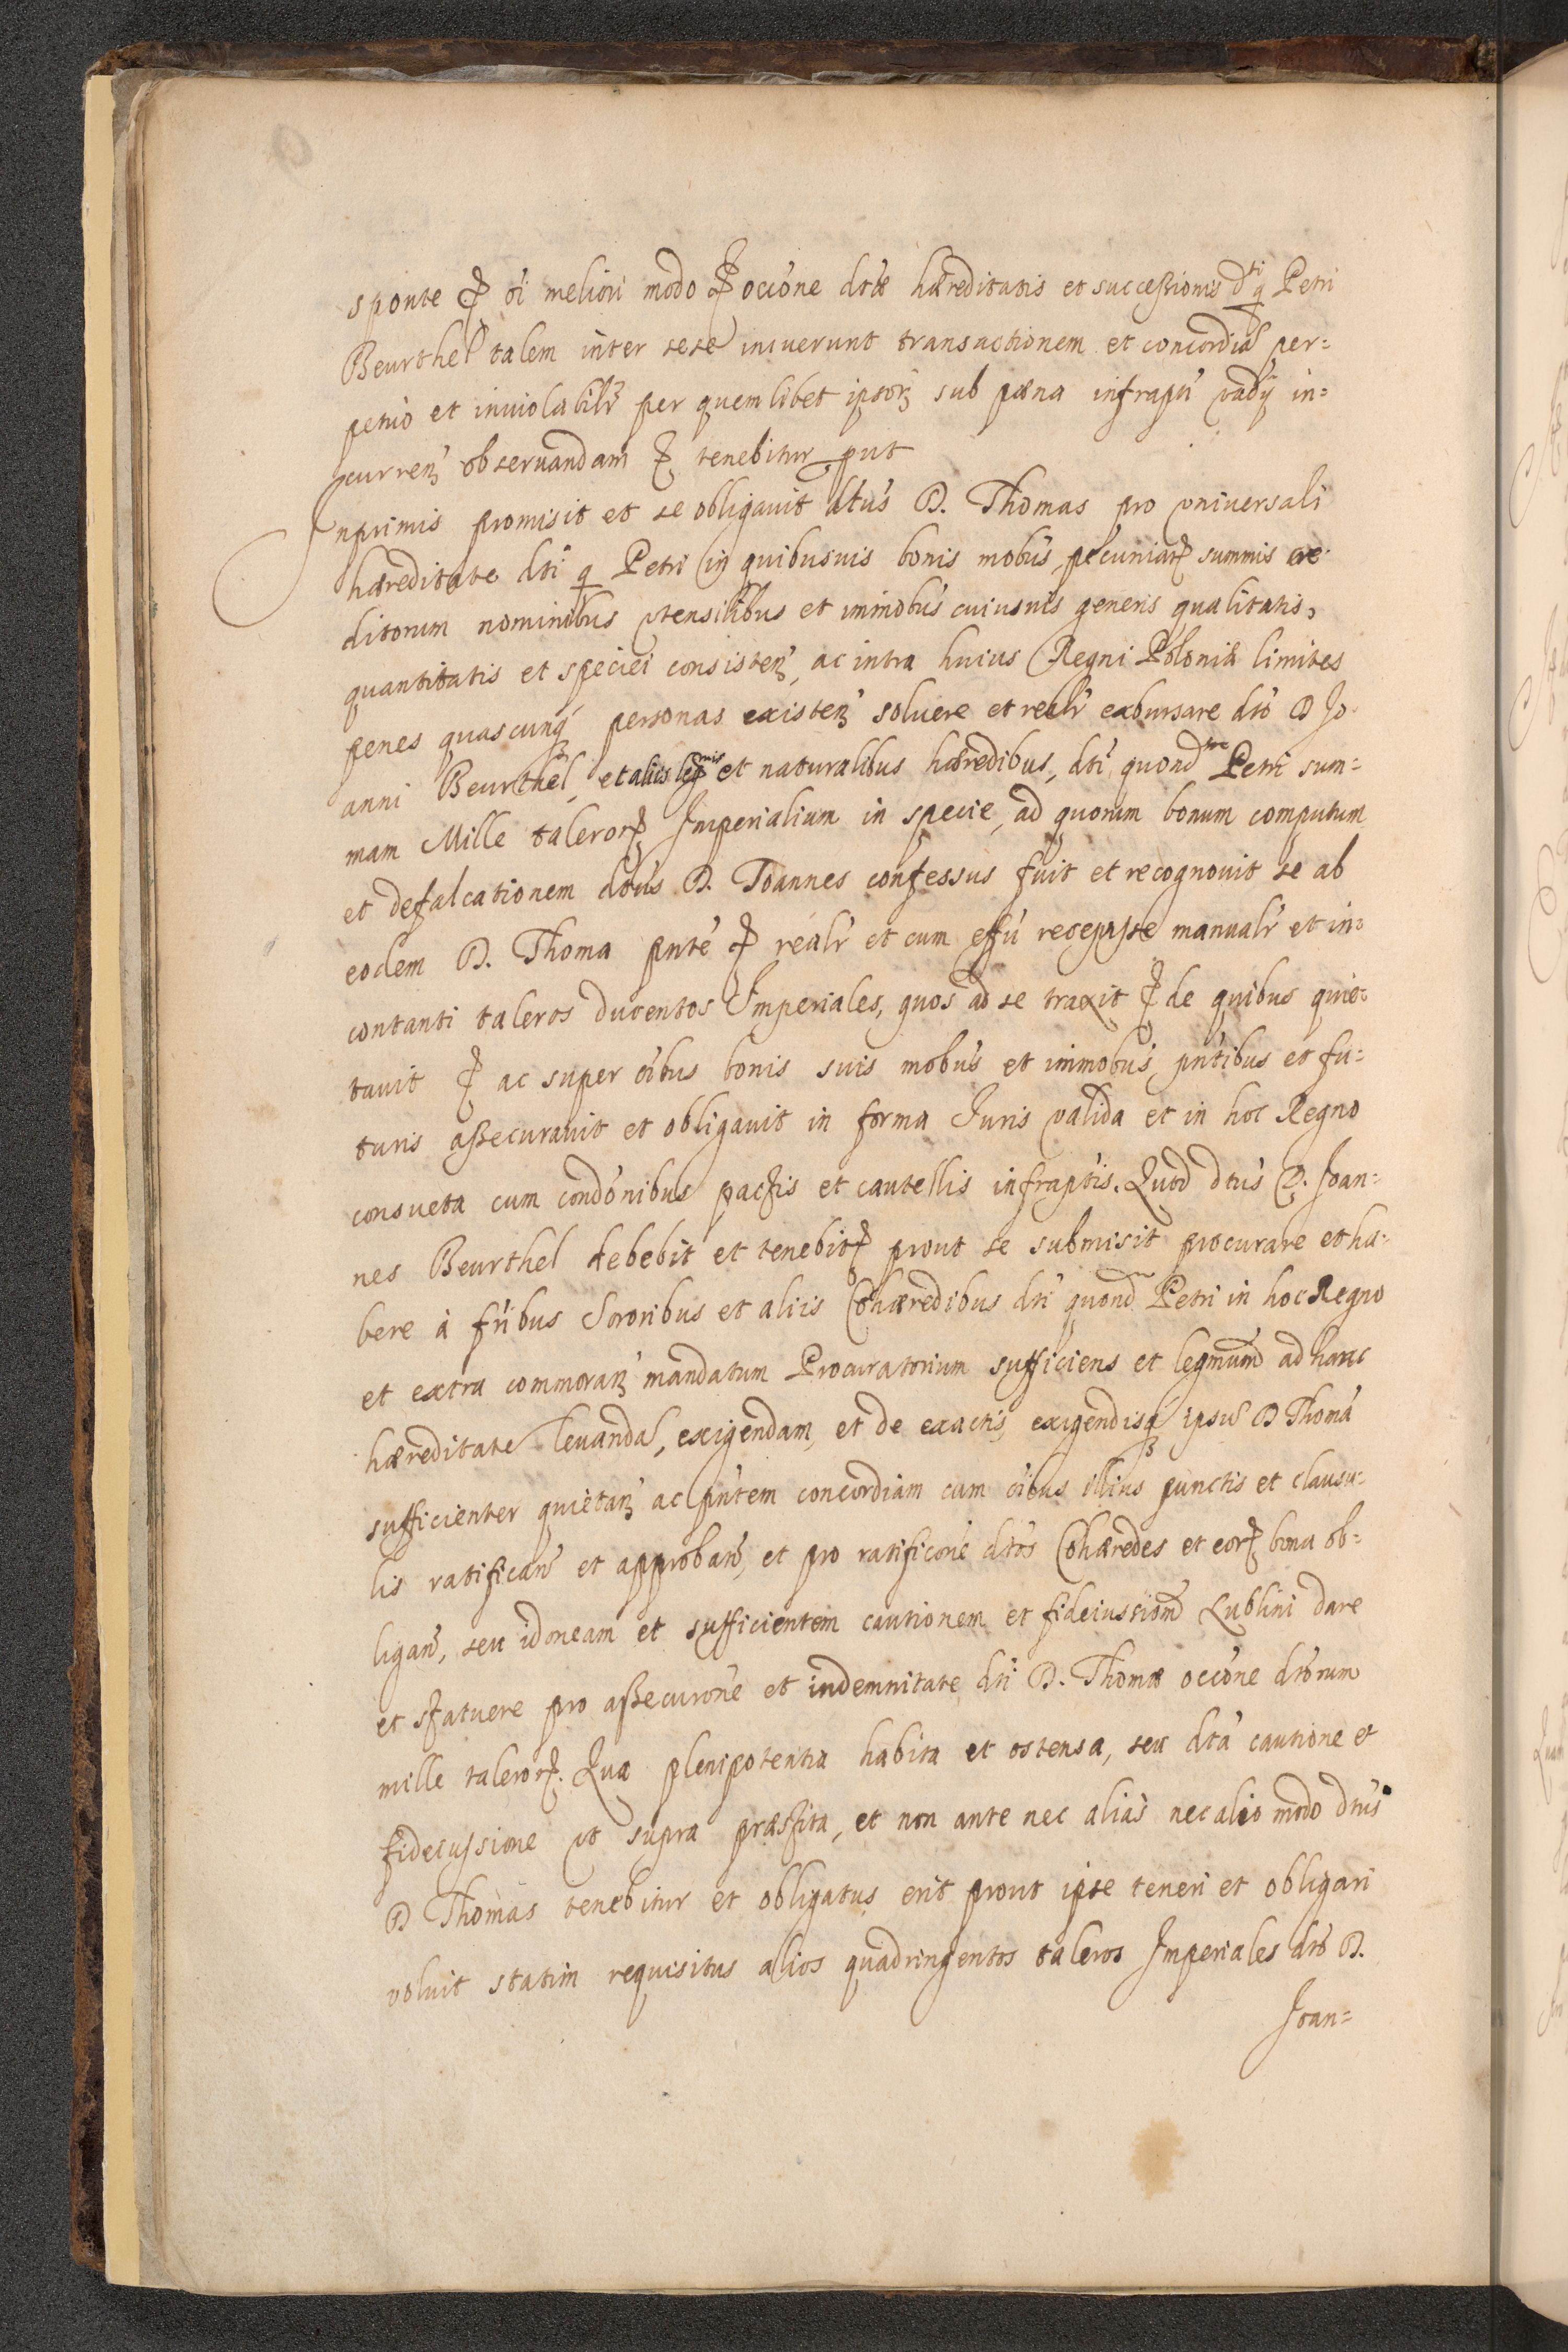 sponte & oi meliori modo & occōne dtæ hæreditatis et successionis dti q Petri
Beurthel talem inter sese iniuerunt transactionem et concordiā per=
petuo et inuiolabilr per quemlibet ipsorȝ sub pæna infrapti vadij in=
currenȝ obseruandam & tenebitur put
Inprimis promisit et se obligauit dtus D. Thomas pro vniuersali
hæreditate dti q Petri in quibusuis bonis mobus, pecuniarȝ summis cre=
ditorum nominibus vtensilibus et immobus cuiusuis generis qualitatis,
quantitatis et speciei consistenȝ, ac intra huius Regni Poloniæ limites
penes quascunqȝ personas existenȝ soluere et realr exbursare dto D Jo=
anni Beurthel, et aliis legmis et naturalibus hæredibus, dti quond Petri sum=
mam Mille talerorȝ Imperialium in specie, ad quorum bonum computum
et defalcationem dtus D. Joannes confessus fuit et recognouit se ab
eodem D. Thoma pnte & realr et cum effu recepisse manualr et in=
contanti taleros ducentos Imperiales, quos ad se traxit & de quibus quie=
tauit & ac super oibus bonis suis mobus et immobus, pntibus et fu=
turis assecurauit et obligauit in forma Juris valida et in hoc Regno
consueta cum condonibus pactis et cautellis infraptis. Quod dtus D. Joan=
nes Beurthel debebit et tenebitȝ prout se submisit procurare et ha=
bere à friibus Sororibus et aliis Cohæredibus dti quond Petri in hoc Regno
et extra commoranȝ mandatum Procuratorium sufficiens et legmum ad hanc
hæreditatē leuandā, exigendam, et de exactis, exigendisqȝ ipsū D Thomā
sufficienter quietanȝ ac pntem concordiam cum oibus illius punctis et clausu=
lis ratifican et approban, et pro ratificone dtos Cohæredes et eorȝ bona ob=
ligan, seu idoneam et sufficientem cautionem et fideiussionē Lublini dare
et statuere pro assecurone et indemnitate dti D. Thomæ occone dtorum
mille talerorȝ. Qua plenipotentia habita et ostensa, seu dta cautione et
fideiussione vt supra præstita, et non ante nec alias nec alio modo dtus
D Thomas tenebitur et obligatus erit prout ipse teneri et obligari
voluit statim requisitus alios quadringentos taleros Imperiales dto D.
Joan=